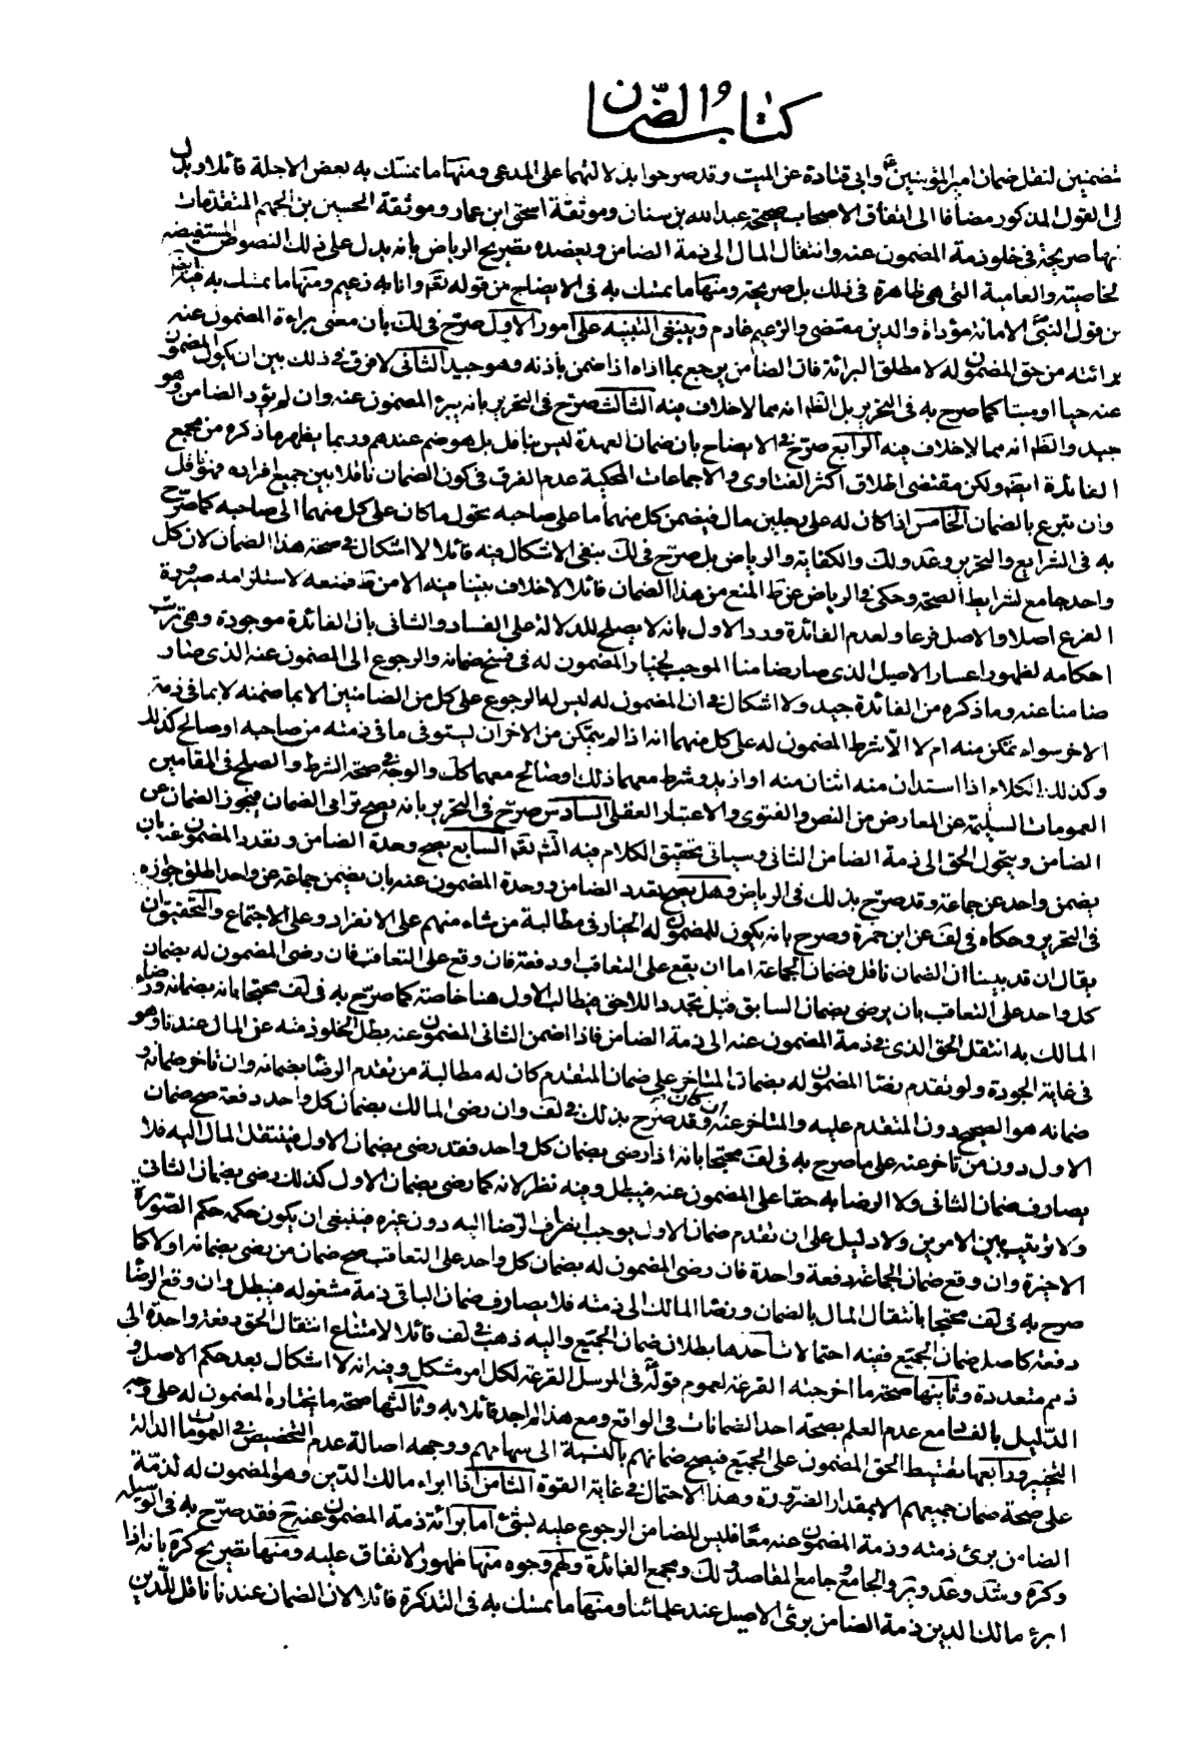 كتاب الضمان
تضمنين لنقل ضمان امير المؤمنين ع وابي قتادة عن الميت وقد صرحوا بدلالتهما على المدعى ومنها ما تمسك به بعض الاجلة قائلا ويدل
لى القول المذكور مضافا الى اتفاق الاصحاب صحيحة عبدالله بن سنان وموثقة اسحق ابن عمار وموثقة الحسين بن الجهم المتقدمات
نها صريحة في خلو ذمة المضمون عنه وانتقال المال الى ذمة الضامن ويعضده تصريح الرياض بانه يدل على ذلك النصوص المستفيضة
لخاصية والعامية التي هي ظاهرة في ذلك بل صريحة ومنها ما تمسك به في الايضاح من قوله تعم وانا به زعيم ومنها ما تمسك به فيه ايضا
من قول النبي الامانة مؤداة والدين مقتضى والزعيم غادم وينبغي التنبيه على امور الاول صرح في لك بان معنى براءة المضمون عنه
برائته من حق المضمون له لا مطلق البرائة فان الضامن يرجع بما اداه اذا ضمن باذنه وهو جيد الثاني لا فرق في ذلك بين ان يكون المضمون
عنه حيا او ميتا كما صرح به في التحرير بل الظ انه مما لا خلاف فيه الثالث صرح في التحرير بانه يبرء المضمون عنه وان لم يؤد الضامن وهو
جيد والظ انه مما لا خلاف فيه الرابع صرح في الايضاح بان ضمان العهدة ليس بناقل بل هو ضم عندهم وربما يظهر ما ذكره من مجمع
الفائدة ايضا ولكن مقتضى اطلاق اكثر الفتاوى والاجماعات المحكية عدم الفرق في كون الضمان ناقلا بين جميع افراده فهو ناقل
وان تبرع بالضمان الخامس اذا كان له على رجلين مال فيضمن كل منهما ما على صاحبه تحول ما كان على كل منهما الى صاحبه كما صرح
به في الشرايع والتحرير وعد ولك والكفاية والرياض بل صرح في لك بنفي الاشكال فيه قائلا لا اشكال في صحة هذا الضمان لان كل
واحد جامع لشرايط الصحة وحكى في الرياض عن ط المنع من هذا الضمان قائلا لا خلاف بيننا فيه الا من ط فمنعه لاستلزامه صيرورة
الفرع اصلا والاصل فرعا ولعدم الفائدة ورد الاول بانه لا يصلح للدلالة على الفساد والثاني بان الفائدة موجودة وهي ترتب
احكامه لظهور اعسار الاصيل الذي صار ضامنا الموجب لخيار المضمون له في فسخ ضمانه والرجوع الى المضمون عنه الذي صار
ضامنا عنه وما ذكره من الفائدة جيد ولا اشكال في ان المضمون له ليس له الرجوع على كل من الضامنين الا بما ضمنه لا بما في ذمة
الاخر سواء تمكن منه ام لا الا شرط المضمون له على كل منهما انه اذا لم يتمكن من الاخران ليستوفى ما في ذمته من صاحبه او صالح كذلك
وكذلك الكلام اذا استدان منه اثنان منه او ازيد وشرط معهما ذلك او صالح معهما كك والوجه في صحة الشرط والصلح في المقامين
العمومات السليمة عن المعارض من النص والفتوى والاعتبار العقلي السادس صرح في التحرير بانه يصح ترامى الضمان فيجوز الضمان عن
الضامن ويتحول الحق الى ذمة الضامن الثاني وسياتي تحقيق الكلام فيه انش تعم السابع يصح وحدة الضامن وتعدد المضمون عنه بان
يضمن واحد عن جماعة وقد صرح بذلك في الرياض وهل يصح تعدد الضامن ووحدة المضمون عنه بان يضمن جماعة عن واحد اطلق جوازه
في التحرير وحكاه في لف عن ابن حمزة وصرح بانه يكون للمضمون له الخيار في مطالبة من شاء منهم على الانفراد وعلى الاجتماع والتحقيق ان
يقال ان قد بينا ان الضمان ناقل فضمان الجماعة اما ان يقع على التعاقب او دفعة فان وقع على التعاقب فان رضى المضمون له بضمان
كل واحد على التعاقب بان يرضى بضمان السابق قبل تجدد اللاحق فيطالب الاول هنا خاصة كما صرح به في لف محتجا بانه بضمانه ورضاء
المالك به انتقل الحق الذي في ذمة المضمون عنه الى ذمة الضامن فاذا اضمن الثاني المضمون عنه بطل لخلو ذمته عن المال عندنا وهو
في غاية الجودة ولو تقدم رضا المضمون له بضمان المتاخر على ضمان المتقدم كان له مطالبة من تقدم الرضا بضمانه وان تاخر ضمانه و
ضمانه هو الصحيح دون المتقدم عليه والمتاخر عنه ان كان وقد صرح بذلك في لف وان رضى المالك بضمان كل واحد دفعة صح ضمان
الاول دون من تاخر عنه على ما صرح به في لف محتجا بانه اذا رضى بضمان كل واحد فقد رضى بضمان الاول فينتقل المال اليه فلا
يصادف ضمان الثاني ولا الرضا به حقا على المضمون عنه فيبطل وفيه نظر لانه كما رضى بضمان الاول كذلك رضى بضمان الثاني
ولا ترتيب بين الامرين ولا دليل على ان تقدم ضمان الاول يوجب انظراف الرضا اليه دون غيره فينبغي ان يكون حكمه حكم الصورة
الاخيرة وان وقع ضمان الجماعة دفعة واحدة فان رضى المضمون له بضمان كل واحد على التعاقب صح ضمان من رضى بضمانه اولا كما
صرح به في لف محتجا بانتقال المال بالضمان ورضا المالك الى ذمته فلا يصادف ضمان الباقي ذمة مشغولة فيبطل وان وقع الرضا
دفعة كاصل ضمان الجميع ففيه احتمالات احدها بطلان ضمان الجميع واليه ذهب في لف قائلا لامتناع انتقال الحق دفعة واحدة الى
ذمم متعددة وثانيها صحة ما اخرجته القرعة لعموم قوله في المرسل القرعة لكل امر مشكل وفيه انه لا اشكال بعد حكم الاصل و
الدليل بالفساد مع عدم العلم بصحة احد الضمانات في الواقع ومع هذا لم اجد قائلا به وثالثها صحة ما يختاره المضمون له على وجه
التخيير ورابعها تقسيط الحق المضمون على الجميع فيصح ضمانهم بالنسبة الى سهامهم ووجهه اصالة عدم التخصيص في العمومات الدالة
على صحة ضمان جميعهم الا بمقدار الضرورة وهذا الاحتمال في غاية القوة الثامن اذا ابراء مالك الدين وهو المضمون له لذمة
الضامن برئ ذمته وذمة المضمون عنه معا فليس للضامن الرجوع عليه بشئ اما برائة ذمة المضمون عنه ح فقد صرح به في الوسيلة
وكرة وشد وعد وير والجامع وجامع المقاصد ولك ومجمع الفائدة ولهم وجوه منها ظهور الاتفاق عليه ومنها تصريح كرة بانه اذا
ابرء مالك الدين ذمة الضامن برئ الاصيل عند علمائنا ومنها ما تمسك به في التذكرة قائلا لان الضمان عندنا ناقل للدين